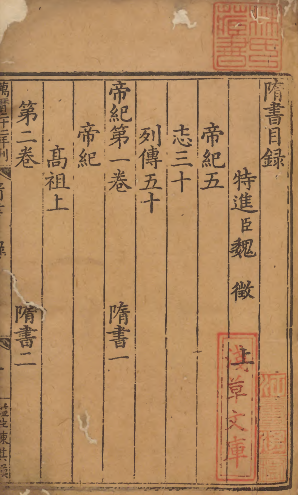 隋書目録
特進臣魏徵上
帝紀五
志三十
列傳五十
帝紀第一卷 隋書一
帝紀
高祖上
第二卷 隋書二
淺草文庫